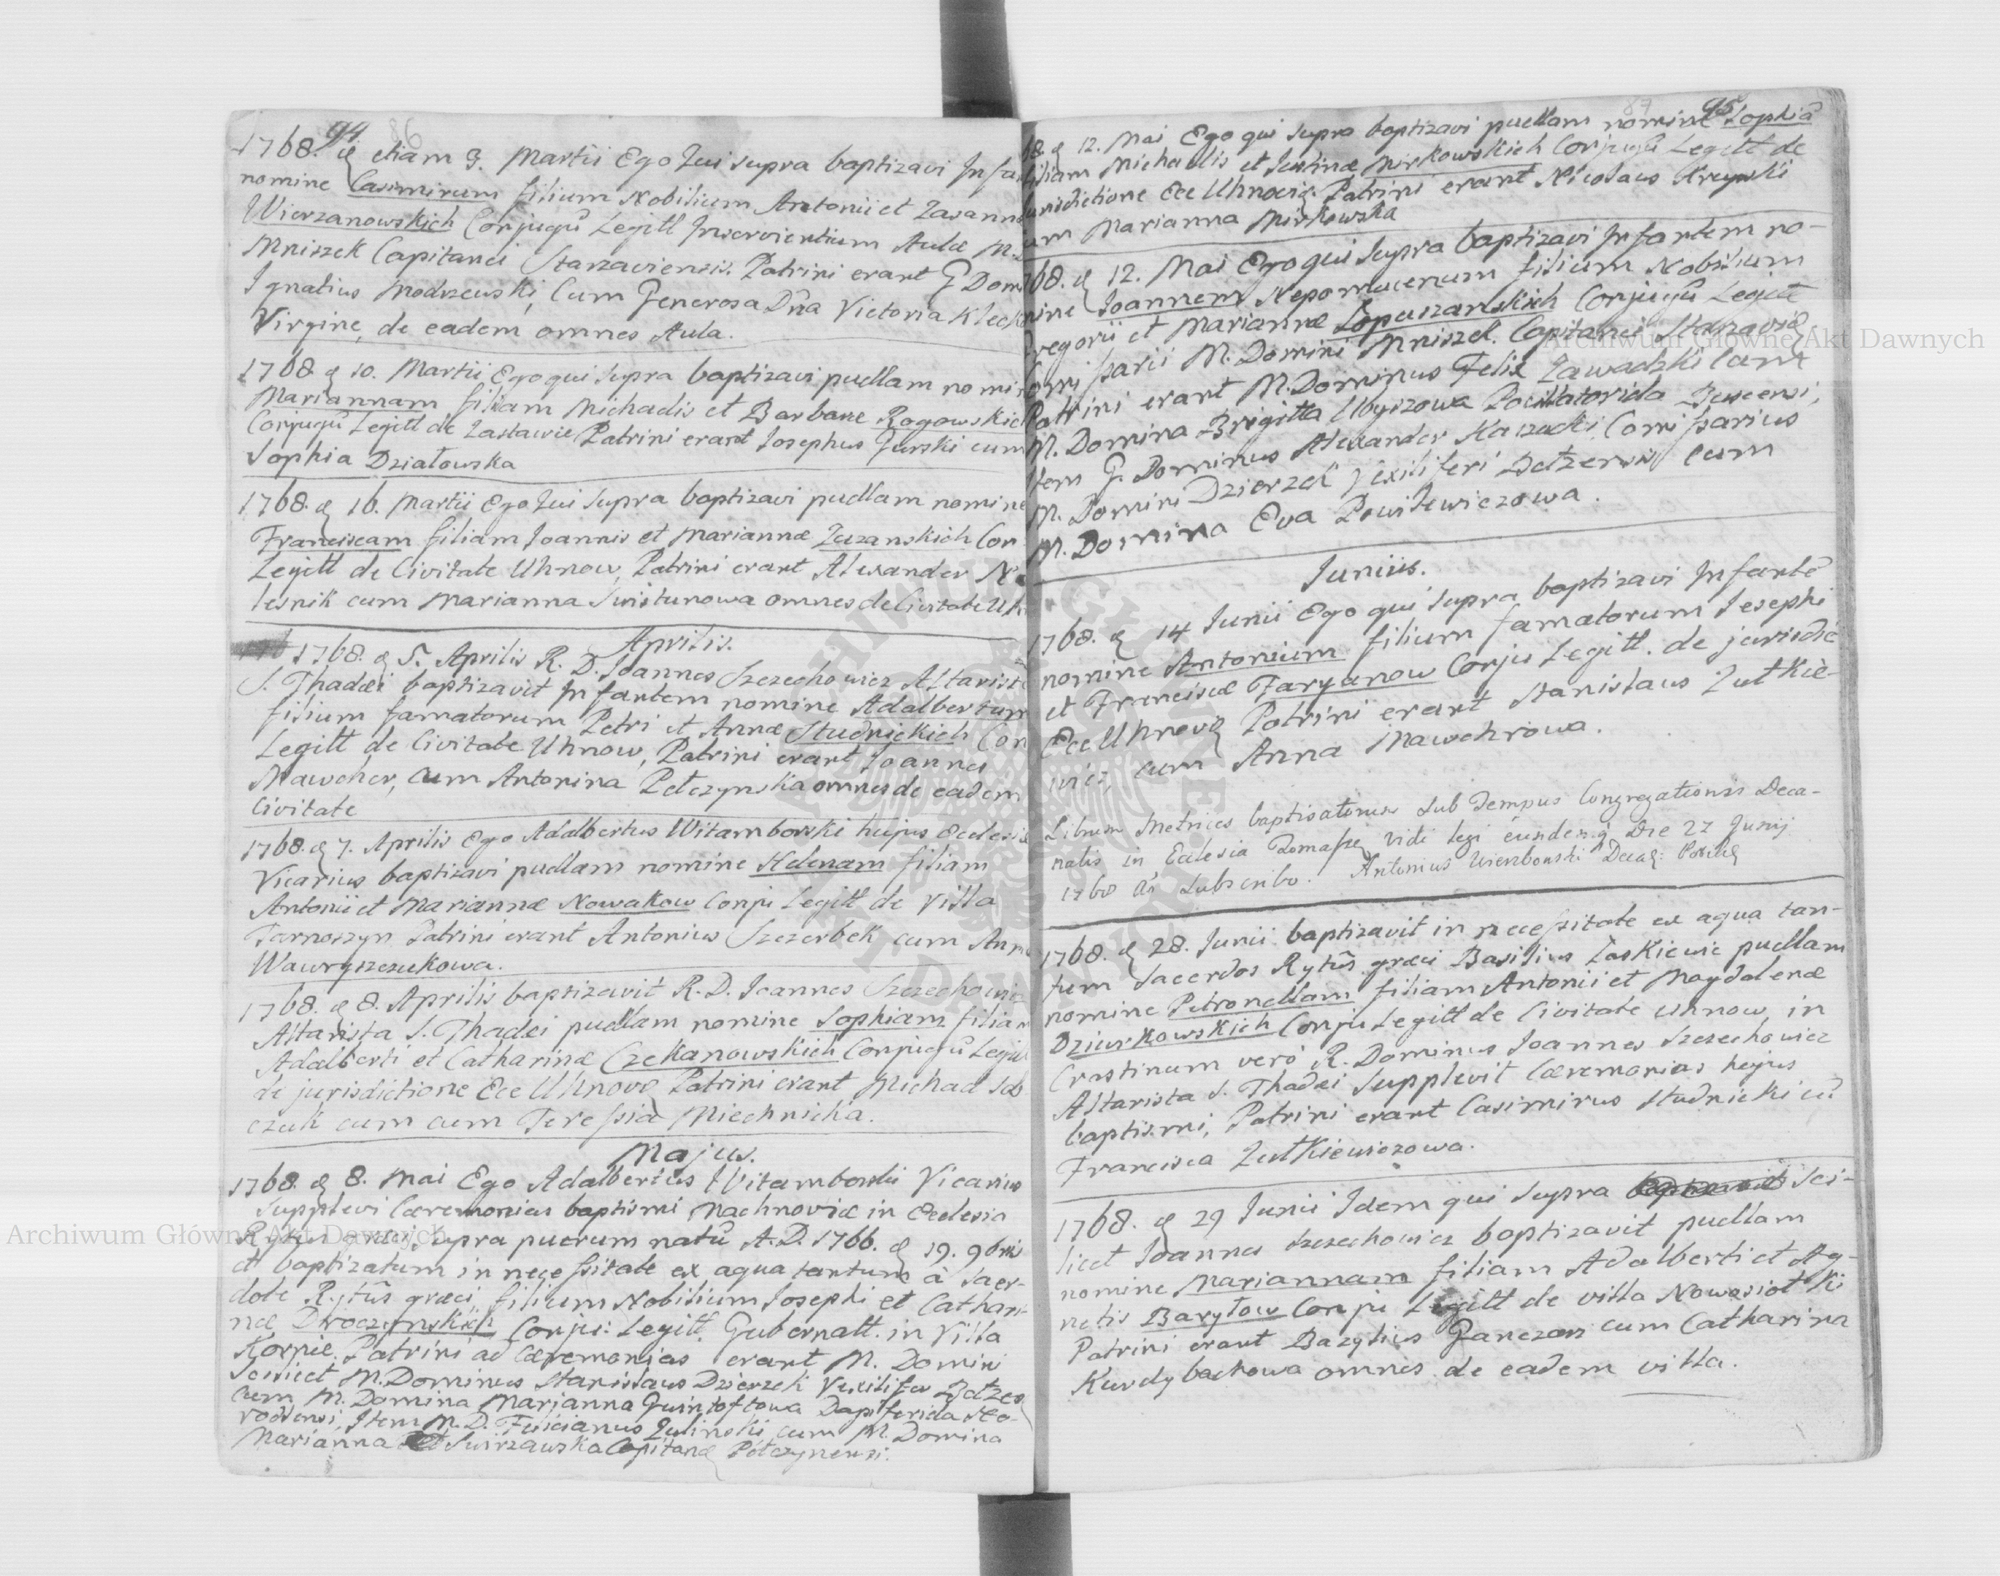 94 86
1768. d etiam 3. Martii Ego Qui supra baptizavi Infan
nomine Casimirum filium Nobilium Antonii et Zusanna
Wierzanowskich Conjugũ Legitt Inservientium Aulæ M.
Mniszek Capitanei Starzaviensis. Patrini erant G Dom
Ignatius Modrzewski, Cum Generosa Dña Victoria Kleck
Virgine, de eadem omnes Aula.
1768 d 10. Martii Ego qui supra baptizavi puellam nomine
Mariannam filiam Michaelis et Barbaræ Rogowskich
Conjugũ Legitt de Zastawie Patrini erant Josephus Gurski cum
Sophia Działowska
1768. d 16. Martii Ego Qui supra baptizavi puellam nomine
Franciscam filiam Joannis et Mariannæ Zuzanskich Con
Legitt de Civitate Uhnow, Patrini erant Alexander
lesnik cum Marianna Swistunowa omnes de Civitate Uh
Aprilis.
1768. d 5. Aprilis R. D. Joannes Szczechowicz Altarista
S. Thadæi baptizavit Infantem nomine Adalbertum
filium famatorum Petri et Annæ Studnickich Con
Legitt de Civitate Uhnow, Patrini erant Joannes
Mawcher, cum Antonina Pełczynska omnes de eadem
Civitate
1768. d 7. Aprilis Ego Adalbertus Witamborski hujus Ecclesiæ
Vicarius baptizavi puellam nomine Helenam filiam
Antonii et Mariannæ Nowakow Conju Legitt de Villa
Tarnoszyn Patrini erant Antonius Szczerbek cum Anna
Wawryszczukowa.
1768. d 8. Aprilis baptizavit R. D. Joannes Szczechowicz
Altarista S. Thadæi puellam nomine Sophiam filiam
Adalberti et Catharinæ Czekanowskich Conjugũ Legit
de jurisdictione Ecc Uhnovᵉ Patrini erant Michael Sob
czuk cum cum Teressia Miechnicka.
Majus.
1768. d 8. Mai Ego Adalbertus Witamborski Vicarius
Supplevi Cæremonias baptismi Machnoviæ in Ecclesia
Rytus græci, supra puerum natũ A. D. 1766. d 19. 9bris
et baptizatum in necessitate ex aqua tantum à Sacer-
dote Rytũs græci, filium Nobilium Josephi et Cathari-
næ Droczynskich Conju: Legitt. Gubernatt. in Villa
Kornie. Patrini ad Cæremonias erant M. Domini
Scilicet M. Dominus Stanislaus Dzierzek Vexillifer Bełzes
cum M. Domina Marjanna Quintoftowa Dapiferida No-
rodensi, Item M. D. Felicianus Zulinski, cum M. Domina
Marianna Swirzawska Capitanᵉ Połczynensi.
87 95
68. d 12. Mai Ego qui supra baptizavi puellam nomine Sophiã
filiam Michaelis et Justinæ Mirkowskich Conjugũ Legitt de
Jurisdictione Ecc Uhnoviᵉ Patrini erant Nicolaus Krzywski
cum Marianna Mirkowska
1768. d 12. Mai Ego qui supra baptizavi Infantem no-
mine Joannem Nepomucenum filium Nobilium
Gregorii et Mariannæ Łopuszanskich Conjugũ Legitt
Comissarii M. Domini Mniszek Capitanei Starzaviᵉ
Patrini erant M. Dominus Felix Zawadzki cum
M. Domina Brigitta Ubyszowa Pocillatorida Buscensi,
Item G. Dominus Alexander Kaszucki Comissarius
M. Domini Dzierzek Vexiliferi Bełzensis cum
M. Domina Eva Powitewiczowa.
Junius.
1768. d 14 Junii Ego qui supra baptizavi Infantẽ
nomine Antonium filium famatorum Josephi
et Franciscæ Faryanow Conju Legitt. de jurisdic
Ecc Uhnovᵉ Patrini erant Stanislaus Zutkie-
wicz, cum Anna Mawchrowa.
Librum Metrices baptisatorum sub Tempus Congregationis Deca-
nalis in Eclesia Zomasze vidi legi eundemq Die 27 Junij
1768 an subscribo. Antonius Wierzbowski Decaᵉ: Potiliᵉ
1768. d 28. Junii baptizavit in necessitate ex aqua tan-
tum Sacerdos Rytũs græci Basilius Łaskiewic puellam
nomine Petronellam filiam Antonii et Magdalenæ
Dziurkowskich Conju Legitt de Civitate Uhnow, in
Crastinum verò R. Dominus Joannes Szczechowicz
Altarista S. Thadæi Supplevit Cæremonias hujus
baptismi, Patrini erant Casimirus Studnicki cũ
Francisca Zutkiewiczowa.
1768. d 29 Junii Idem qui supra Sci-
licet Joannes Szczechowicz baptizavit puellam
nomine Mariannam filiam Adalberti et Ag-
netis Baryłow Conju Legitt de villa Nowosiołki
Patrini erant Bazylius Ganczan cum Catharina
Kurdybachowa omnes de eadem villa.
Archiwum Główne Akt Dawnych
Archiwum Główne Akt Dawnych